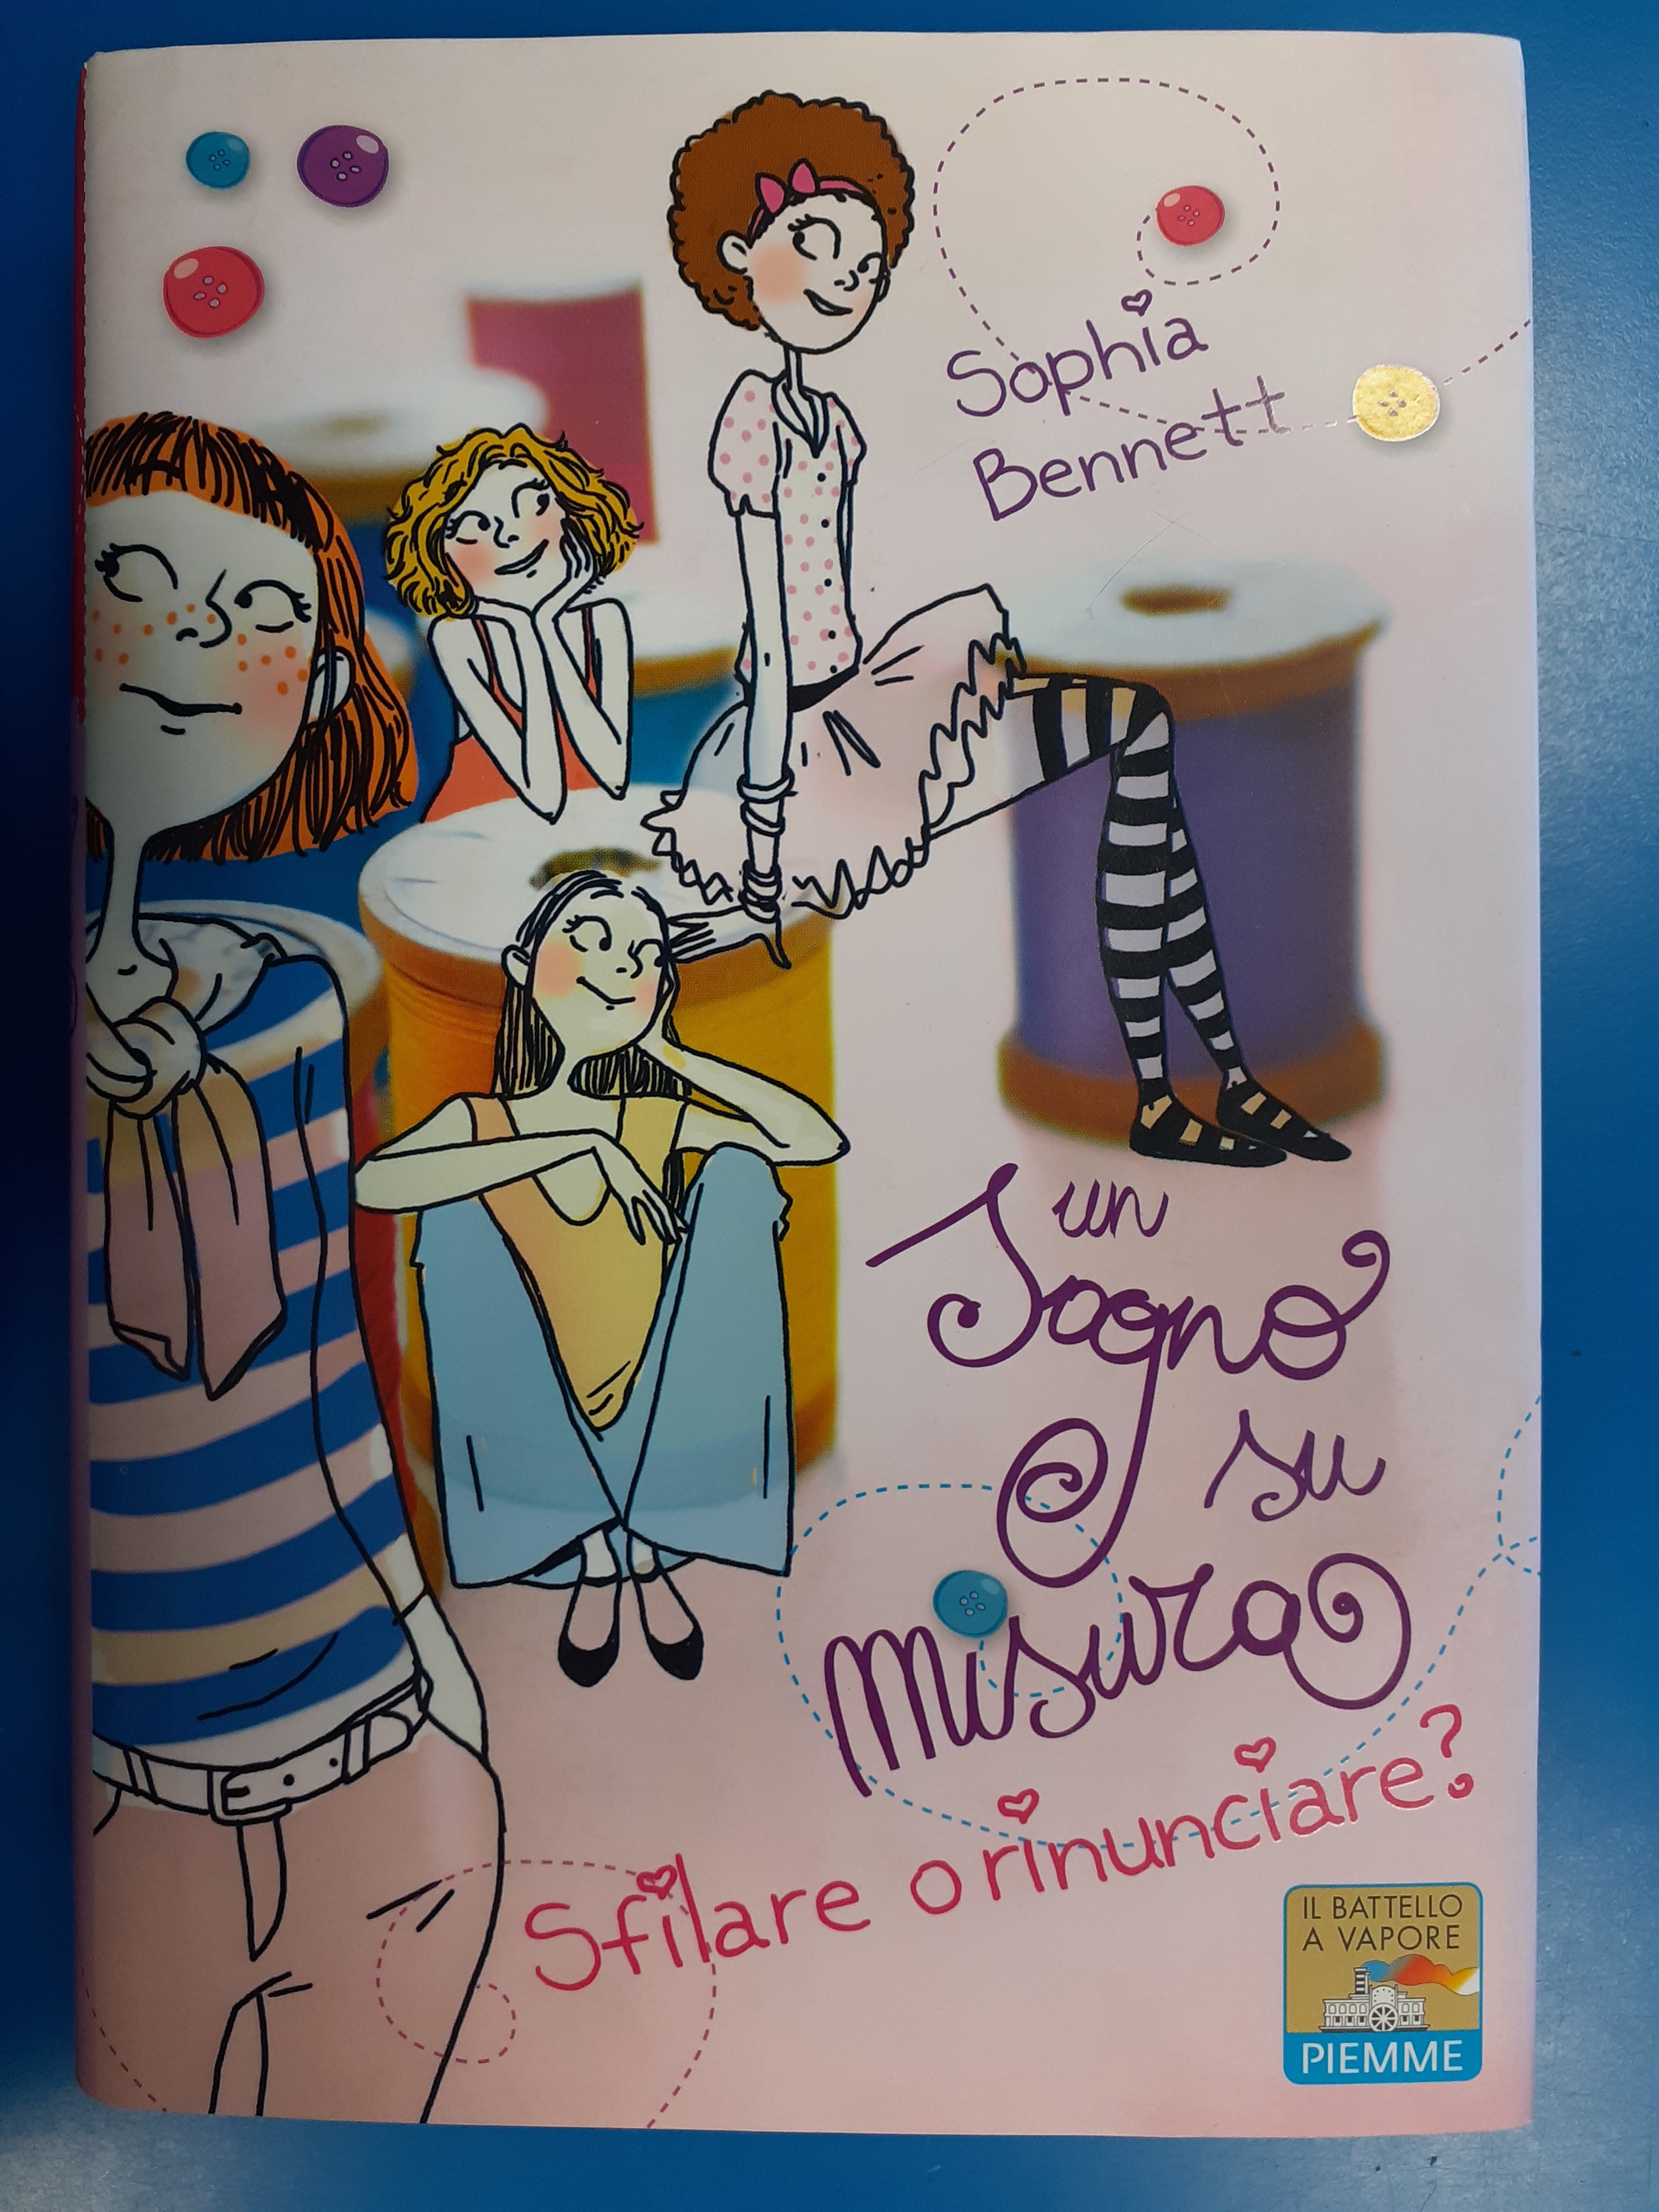 Sophia
Bennett
un
Sogno
su
Misura
Sfilare o rinunciare?
IL BATTELLO
A VAPORE
PIEMME